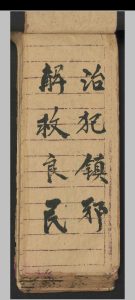 治犯鎮邪
解救良民